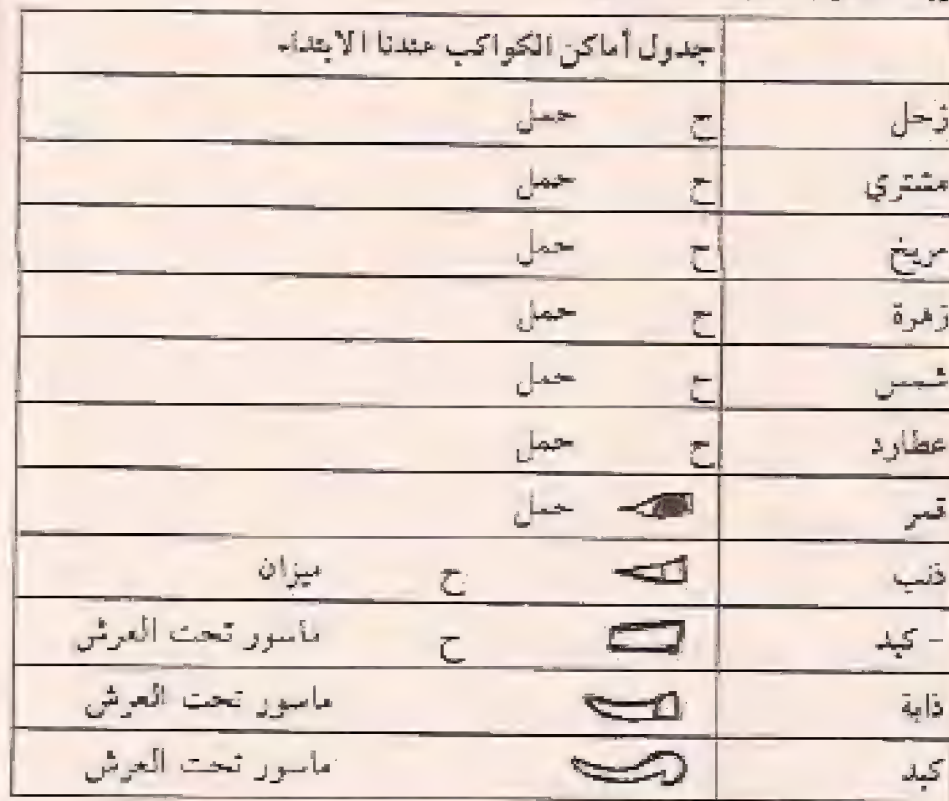 جدول أماكن الكواكب عندنا الابتداء
زحل ح حمل
مشتري ح حمل
مريخ ح حمل
زهرة ح حمل
شمس ح حمل
عطارد ح حمل
قمر حمل
ذنب ح ميزان
- كبد ح مأسور تحت العرش
ذابة ماسور تحت العرش
كبد ماسور تحت العرش